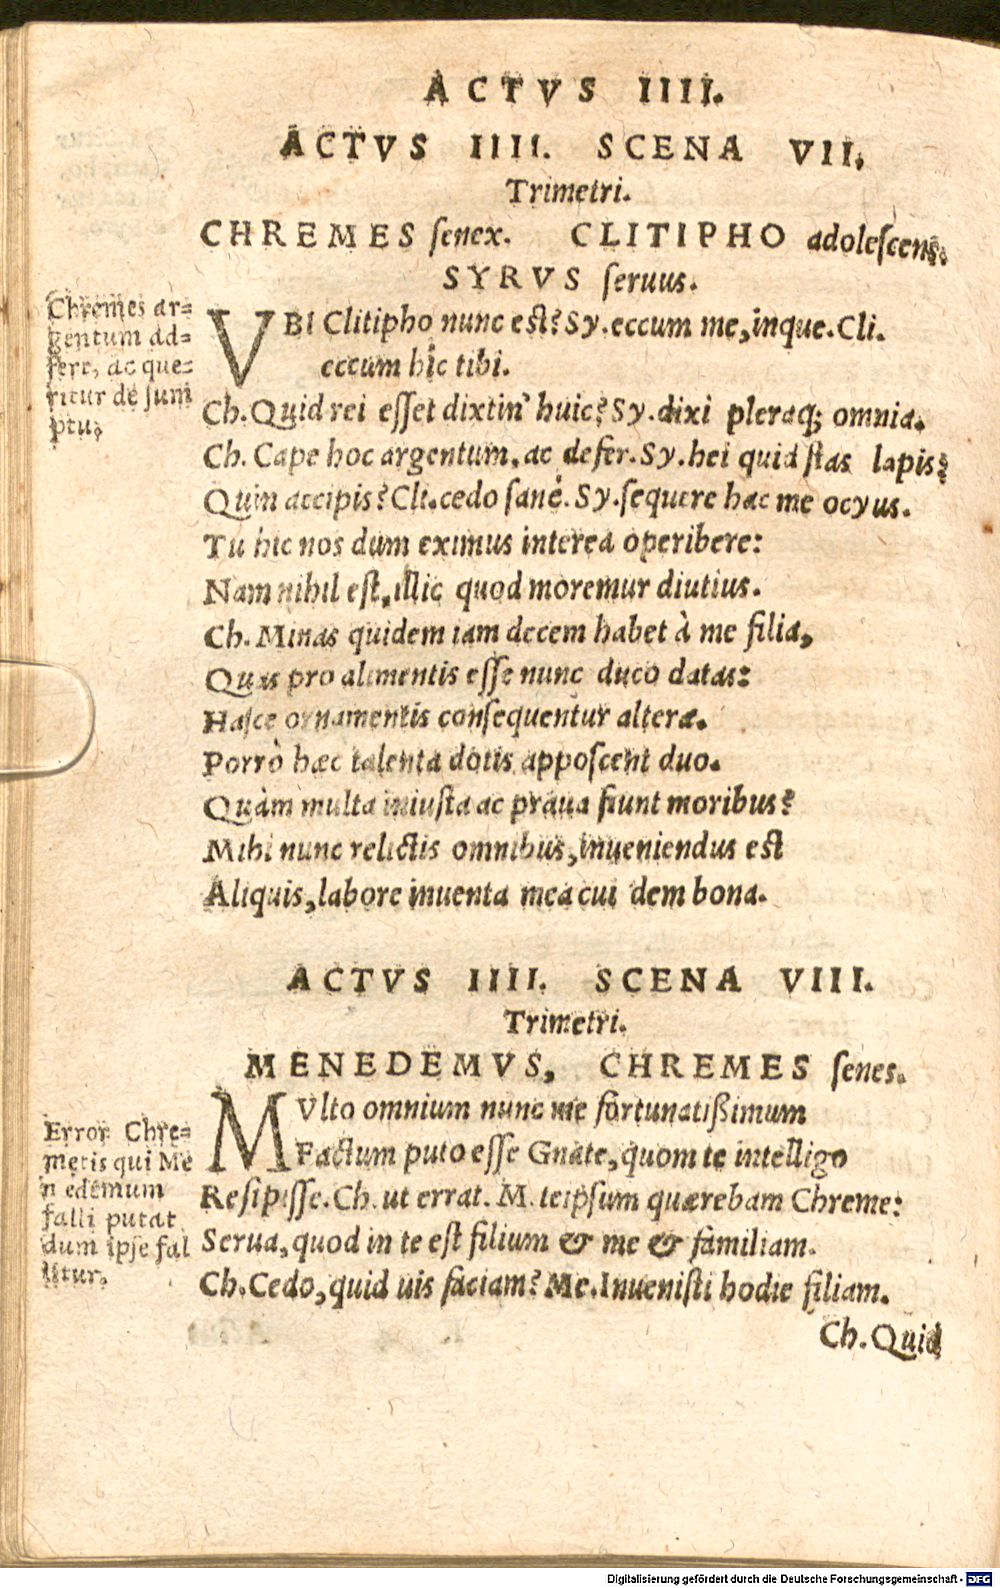 ACTVS IIII.
ACTVS IIII. SCENA VII.
Trimetri.
CHREMES ſenex. CLITIPHO adoleſcens.
SYRVS ſeruus.
Chremes ar-
gentum ad-
fert, ac que-
ritur de ſum
ptu.
VBI Clitipho nunc eſt? Sy. eccum me, inque. Cli.
eccum hîc tibi.
Ch. Quid rei eſſet dixtin' huic? Sy. dixi pleraq; omnia.
Ch. Cape hoc argentum, ac defer. Sy. hei quid ſtas lapis?
Quin accipis? Cli. cedo ſanè. Sy. ſequere hac me ocyus.
Tu hic nos dum eximus interea operibere:
Nam nihil eſt, illic quod moremur diutius.
Ch. Minas quidem iam decem habet à me filia,
Quas pro alimentis eſſe nunc duco datas:
Haſce ornamentis conſequentur alteræ.
Porrò hæc talenta dotis appoſcent duo.
Quàm multa iniuſta ac praua fiunt moribus?
Mihi nunc relictis omnibus, inueniendus eſt
Aliquis, labore inuenta mea cui dem bona.
ACTVS IIII. SCENA VIII.
Trimetri.
MENEDEMVS, CHREMES ſenes.
Error Chre-
metis qui Me
n edemum
falli putat
dum ipſe fal
litur.
MVlto omnium nunc me fortunatißimum
Factum puto eſſe Gnate, quom te intelligo
Reſipiſſe. Ch. ut errat. M. teipſum quærebam Chreme:
Serua, quod in te eſt filium & me & familiam.
Ch. Cedo, quid uis faciam? Me. Inueniſti hodie filiam.
Ch. Quid
Digitalisierung gefördert durch die Deutsche Forschungsgemeinschaft - DFG